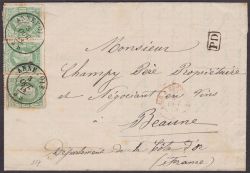 PD
Monsieur
Champy Père Propriétaire
et Négociant en Vins
à
Beaune
Département de la Côte d'Or
(France)